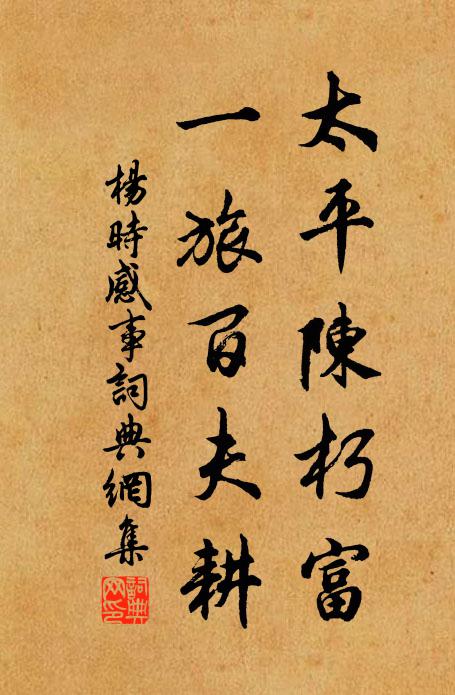 太平陳朽富
一旅百夫耕
楊時感事詞典網集
詞典
网印